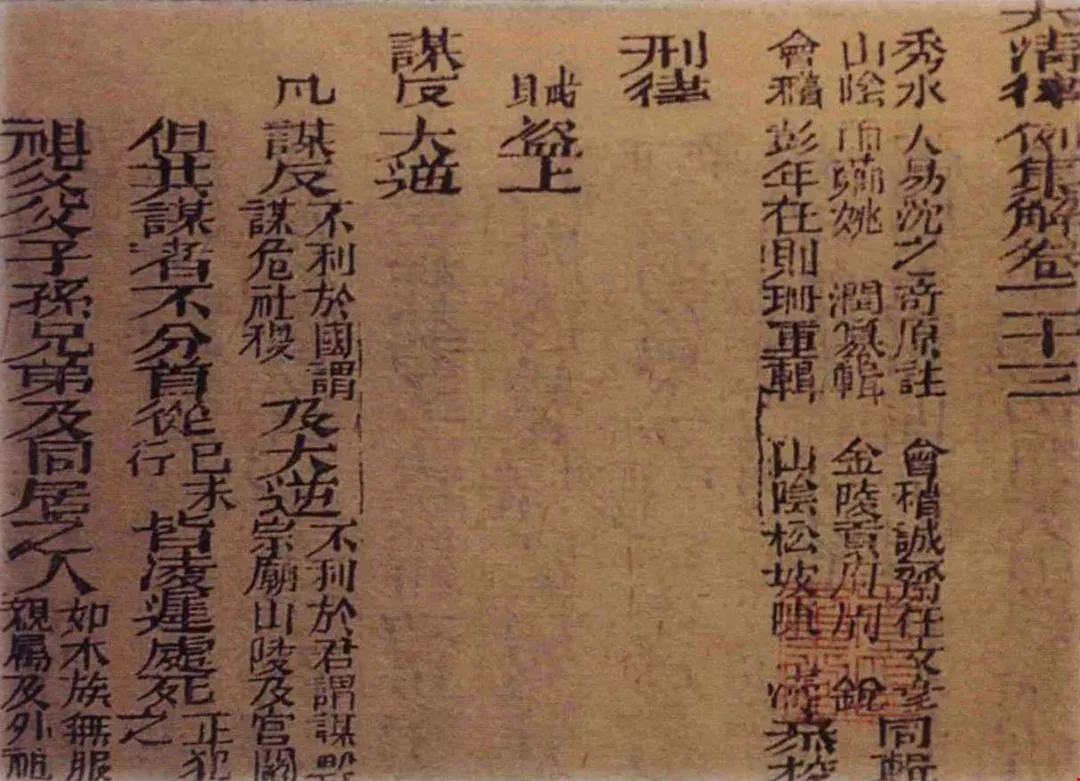 大清律例集解卷二十三
秀水人易沈之奇原註 會稽誠齋任文 同輯
山陰 姚 潤纂輯 金陵黃 銳
會稽彭年任則珊重輯 山陰松坡陳 參校
刑律
賊盜上
謀反大逆
凡謀反不利於國謂謀危社稷及大逆不利於君謂謀毀宗廟山陵及宮闕
但共謀者不分首從已未行皆凌遲處死正犯之
祖父父子孫兄弟及同居之人如本族無服親屬及外祖